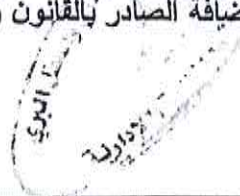 ضافة الصادر بالقانون
البري
الإدارية